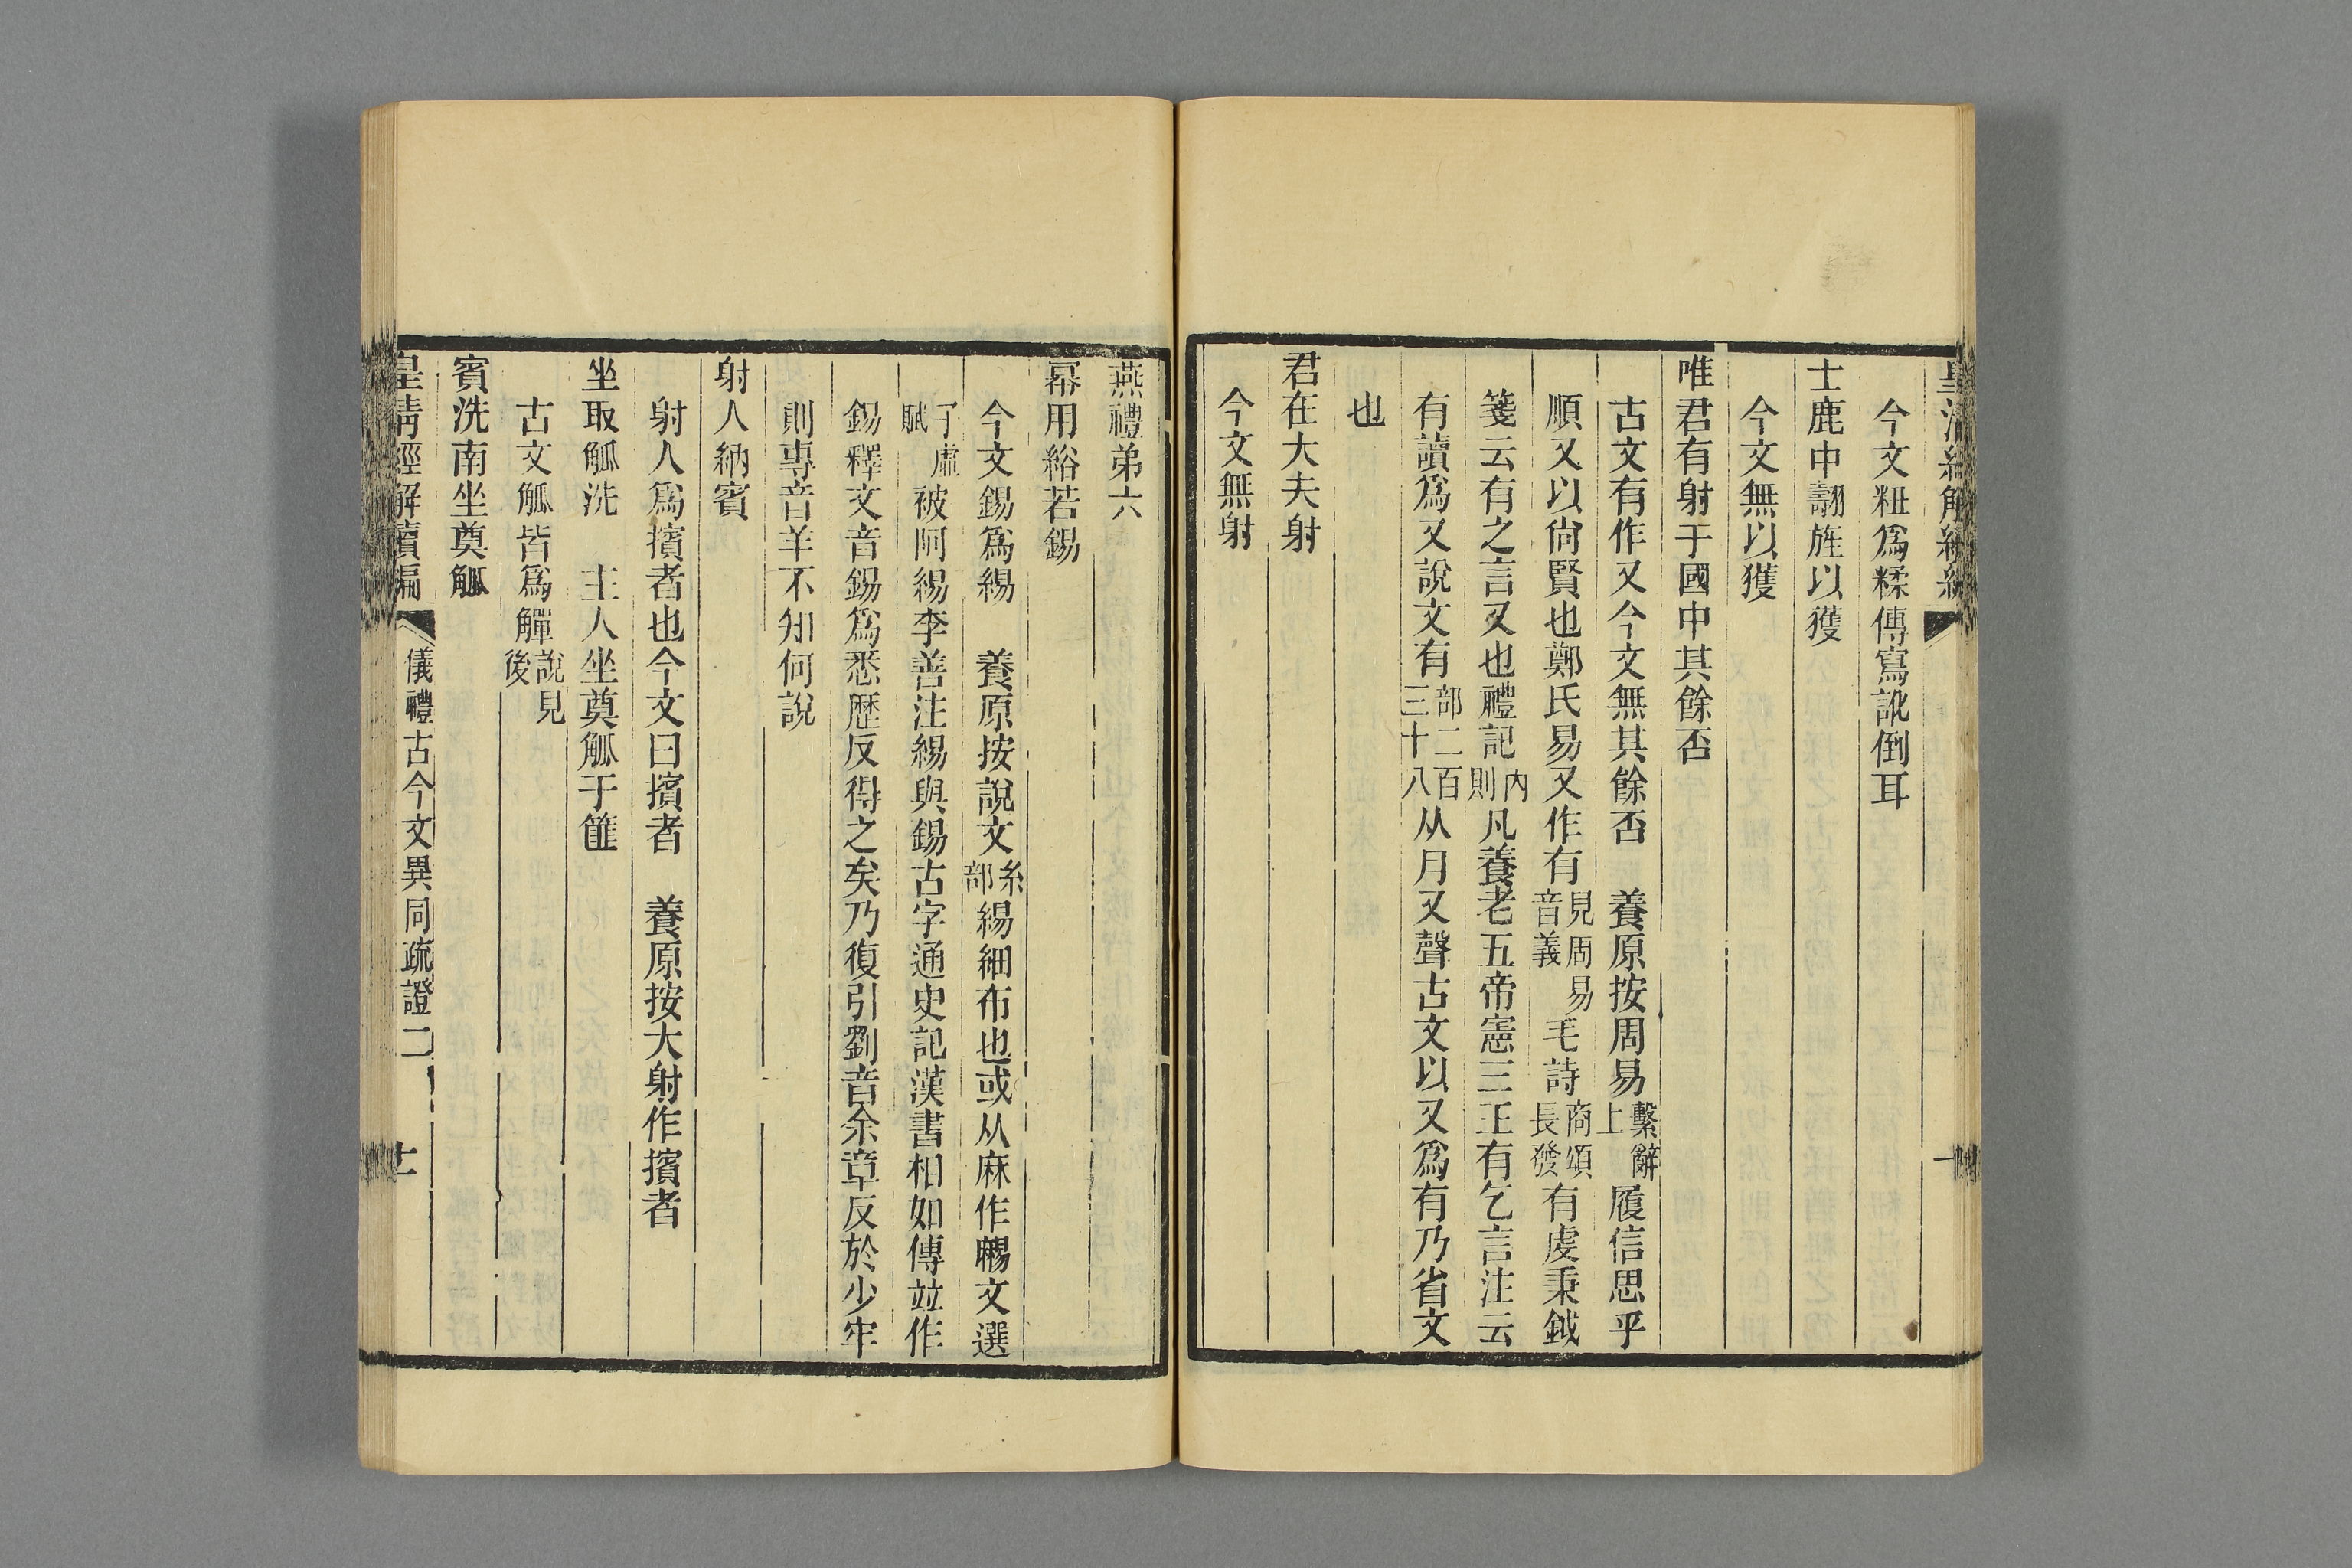 今文粈爲糅傳寫訛倒耳
士鹿中翿旌以獲
今文無以獲
唯君有射于國中其餘否
古文有作又今文無其餘否　養原按周易繫辭上履信思乎
順又以尙賢也鄭氏易又作有見周易音義毛詩商頌長發有虔秉鉞
箋云有之言又也禮記內則凡養老五帝憲三王有乞言注云
有讀爲又說文有部二百三十八从月又聲古文以又爲有乃省文
也
君在大夫射
今文無射
燕禮弟六
冪用綌若錫
今文錫爲緆　養原按說文糸部緆細布也或从麻作䴅文選
子虛賦被阿緆李善注緆與錫古字通史記漢書相如傳竝作
錫釋文音錫爲悉歷反得之矣乃復引劉音余章反於少牢
則專音羊不知何說
射人納賓
射人爲擯者也今文曰擯者　養原按大射作擯者
坐取觚洗　主人坐奠觚于篚
古文觚皆爲觶說見後
賓洗南坐奠觚
皇清經解續編　儀禮古今文異同疏證二